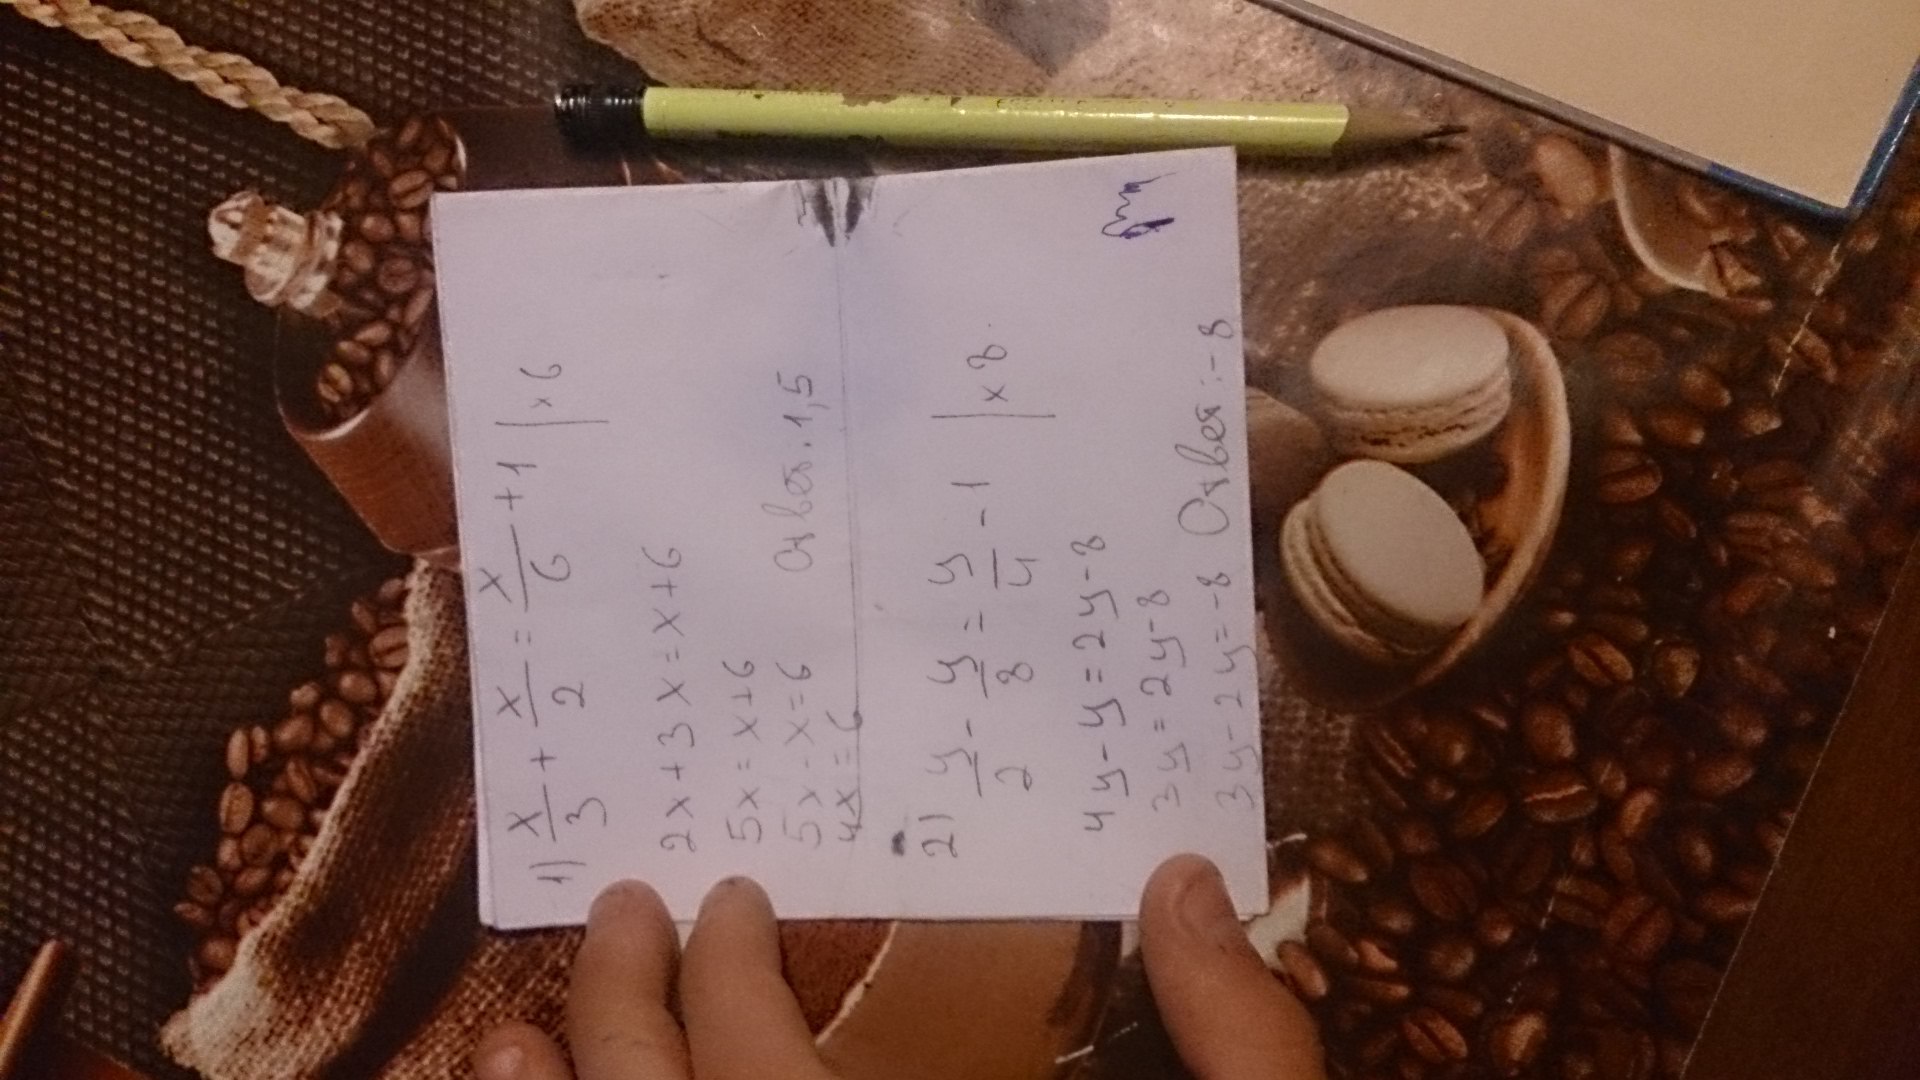 1) x/3 + x/2 = x/6 + 1 | x 6
2x + 3x = x + 6
5x = x + 6
5x - x = 6
4x = 6 Ответ. 1,5
2) y/2 - y/8 = y/4 - 1 | x 8.
4y - y = 2y - 8
3y = 2y - 8
3y - 2y = -8 Ответ: -8